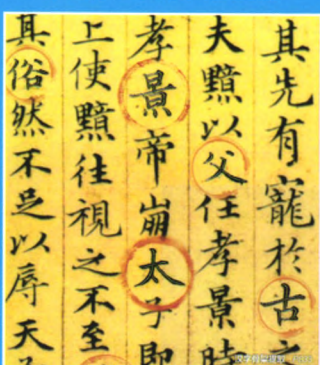 其先有寵於古之
夫黯以父任孝景時
孝景帝崩太子即
上使黯往視之不至
其俗然不足以辱天子